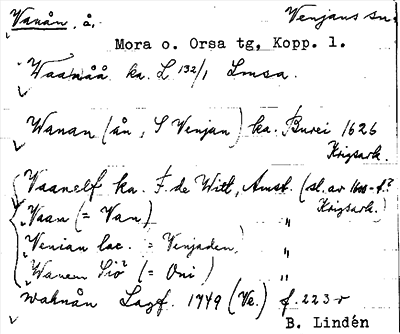 Vanån, å. Venjans sn.
Mora o. Orsa tg, Kopp. l.
Waanåå ka. L 132/1 Lmsa.
Wanan (ån, S Venjan) ka. Burei 1626
Krigsark.
Vaanelf ka. F. de Witt, Amst. (sl. av 1600-t.?
Krigsark.)
Vaan (= Van) "
Venian lac. (= Venjaden) "
Wanem Siö (= Oni) "
Wahnån Lagf. 1749 (Ve.) f. 223 v
B. Lindén